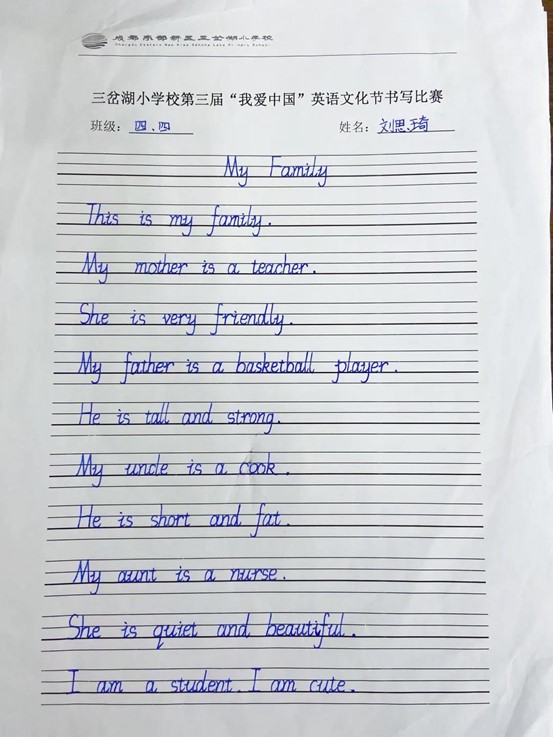 成都东部新区三岔湖小学校
Chengdu Eastern New Area Sancha Lake Primary School
三岔湖小学校第三届“我爱中国”英语文化节书写比赛
班级：四.四 姓名：刘思琦
My Family
This is my family.
My mother is a teacher.
She is very friendly.
My father is a basketball player.
He is tall and strong.
My uncle is a cook.
He is short and fat.
My aunt is a nurse.
She is quiet and beautiful.
I am a student. I am cute.